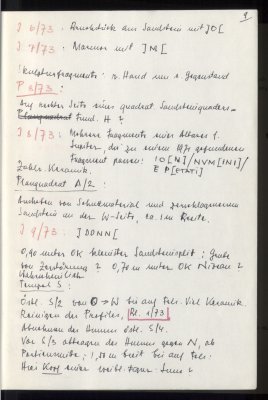 9
J 6/73 : Bruchstück aus Sandstein mit JO[
J 7/73 : Marmor mit ]N[
Skulpturfragmente : r. Hand um r. Gegenstand
P 8/73 :
Auf rechter Seite eines quadrat. Sandsteinquaders
Planquadrat Fund. H ?
J 8/73 : Mehrere Fragmente eines Altares f.
Jupiter, die zu einem 1971 gefundenen
Fragment passen : IO[N]/NVM[INI]/
Zahlr. Keramik. ED[ETATI]
Planquadrat A/2 :
Ausheben von Schuttmaterial und zerschlagenem
Sandstein an der W-Seite, ca. 1m Breite.
J 9/73 : ]DONN[
0,40 unter OK Sandsteinsplitt : Grube
von Zerstörung ? 0,70 m unter OK Niveau ?
Wahrscheinlich
Tempel S :
Östl. S/2 von O → W bis auf Fels. Viel Keramik.
Reinigen der Profiles, Pl. 1/73
Abnehmen des Humus östl. S/4.
Vor S/3 abtragen des Humus gegen N, ab
1,50 m breit bis auf Fels.
Hier Kopf einer weibl.